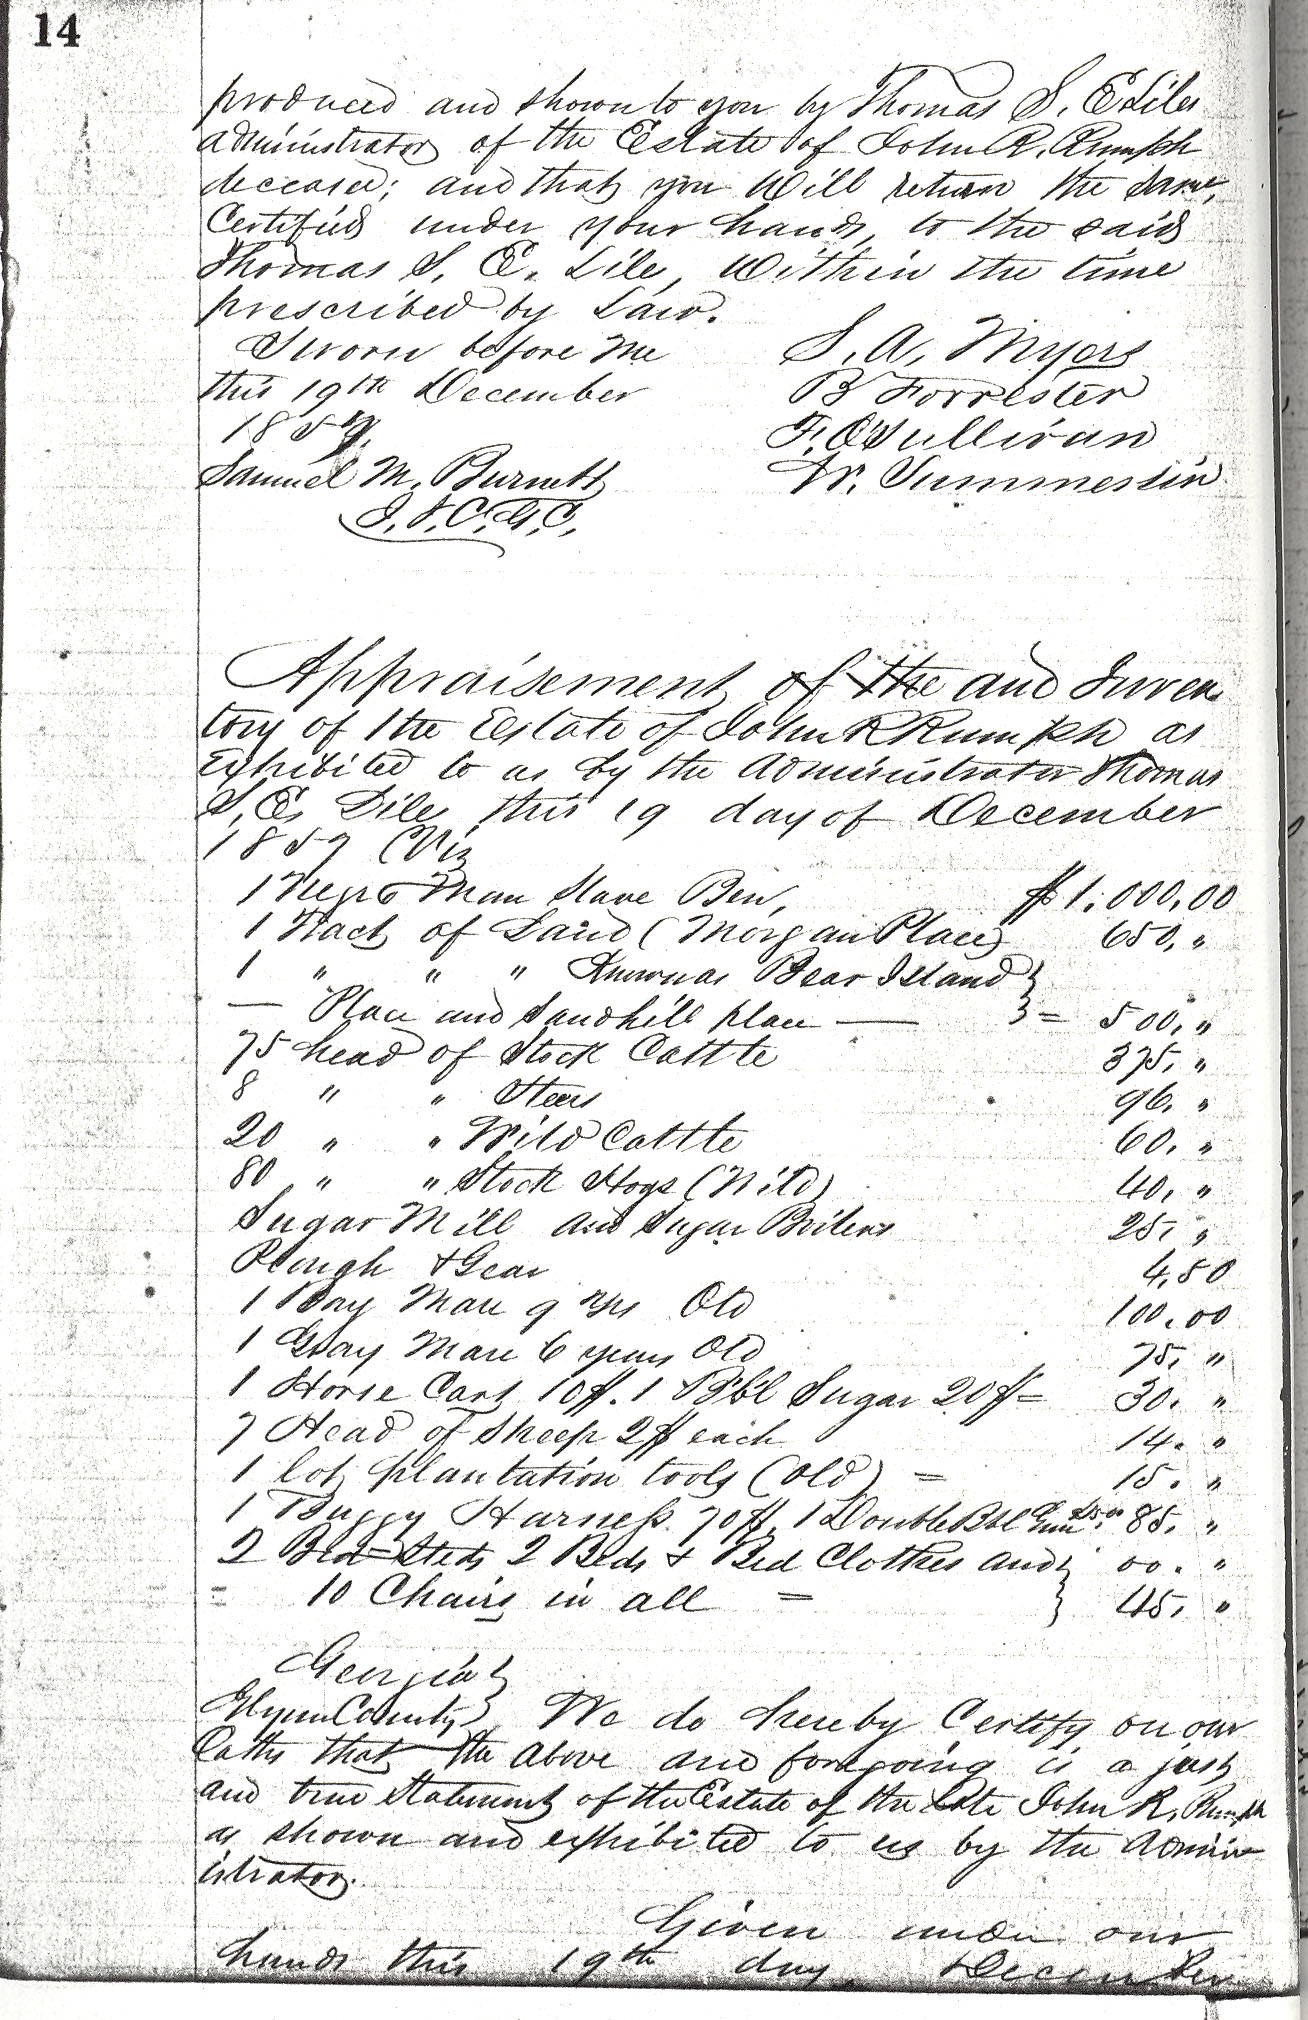 14
produced and shown to you by Thomas S. E. Liles
administrator of the Estate of John R. Rumph
deceased; and that you Will return the same,
Certified under your hands, to the said
Thomas S. E. Lile, Within the time
prescribed by Law.
Sworn before Me
this 19th December
1857.
Samuel M. Burnett
J. I. C. G. C.
S. A. Myers
B Forrester
F. O'Sullivan
W. Summerlin
Appraisement of the and Inven
tory of the Estate of John R Rumph as
Exhibited to us by the Administrator Thomas
S. E. Lile, this 19 day of December
1857 (Viz
1 Negro Man Slave Ben, $1.000,00
1 Tract of Land (Morgan Place) 650, "
1 " " " Known as Bear Island }
— Place and Sandhill place — } = 500, "
75 head of Stock Cattle 375, "
8 " " Steers 96, "
20 " " Wild Cattle 60, "
80 " " Stock Hogs (Wild) 40, "
Sugar Mill and Sugar Boilers 25, "
Plough & Gear 4,50
1 Bay Mare 9 Yrs Old 100.00
1 Gray Mare 6 years Old 75, "
1 Horse Cart 10$. 1 Bbl Sugar 20$ = 30. "
7 Head of Sheep 2$ each 14. "
1 lot plantation tools (Old) = 15. "
1 Buggy Harness. 70$, 1 Double Bbl Gun 15.00 85. "
2 Bed=Steds 2 Beds & Bed Clothes and } 00. "
= 10 Chairs in all = } 45, "
Georgia }
Glynn County } We do hereby Certify on our
Oaths that the above and foregoing is a just
and true Statement of the Estate of the late John R. Rumph
as shown and exhibited to us by the Admin
istrator.
Given under our
hands this 19th day December